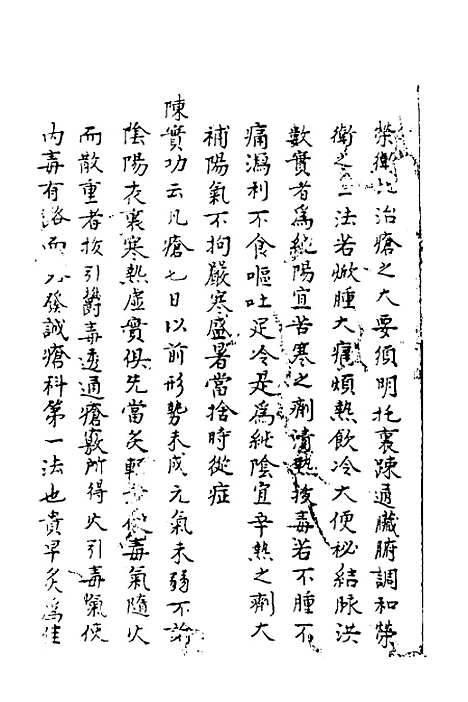 榮衛此治瘡之大要須明托裏疎通臟腑調和榮
衛之三法若焮腫大痛煩熱飲冷大便秘結脉洪
數實者為純陽宜苦寒之劑清熱拔毒若不腫不
痛瀉利不食嘔吐足冷是為純陰宜辛熱之劑大
補陽氣不拘嚴寒盛署當捨時從症
陳實功云凡瘡七日以前形勢未成元氣未弱不論
陰陽表裏寒熱虛實俱先當灸輕者使毒氣隨火
而散重者拔引欝毒透通瘡竅所得火引毒氣使
內毒有路而外發誠瘡科第一法也貴早灸為佳